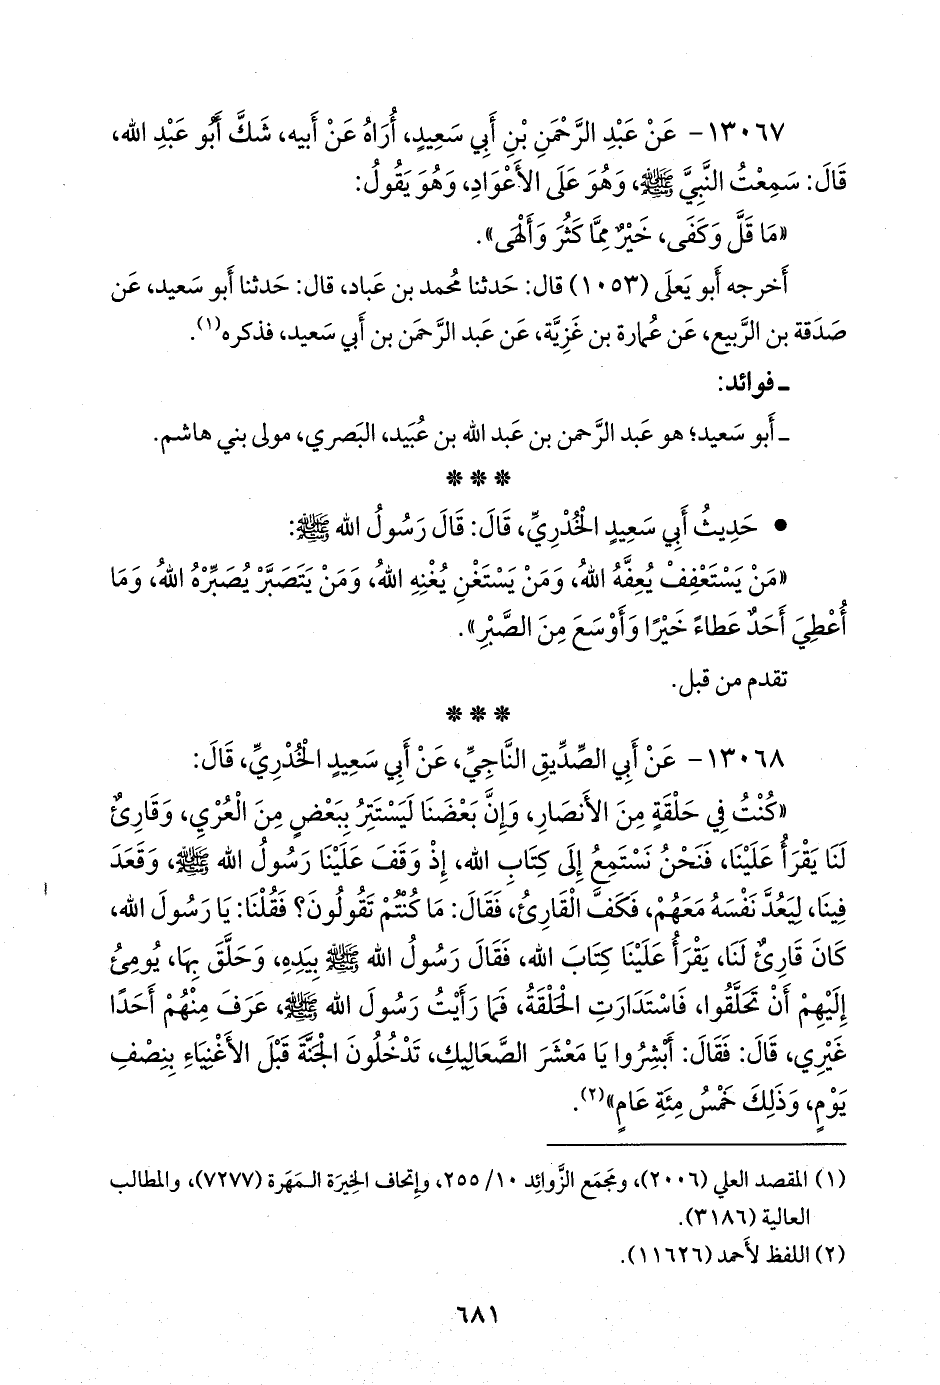 ١٣٠٦٧- عَنْ عَبْدِ الرَّحْمَنِ بْنِ أَبِي سَعِيدٍ، أُرَاهُ عَنْ أَبيه، شَكَّ أَبُو عَبْدِ الله،
قَالَ: سَمِعْتُ النَّبِيَّ ﷺ، وَهُوَ عَلَى الأَعْوَادِ، وَهُوَ يَقُولُ:
«مَا قَلَّ وَكَفَى، خَيْرٌ مِمَّا كَثُرَ وَأَلْهَى».
أَخرجه أَبو يَعلَى (١٠٥٣) قال: حَدثنا مُحمد بن عَباد، قال: حَدثنا أَبو سَعيد، عَن
صَدَقة بن الرَّبيع، عَن عُمارة بن غَزِيَّة، عَن عَبد الرَّحمَن بن أَبي سَعيد، فذكره(١).
ـ فوائد:
ـ أَبو سَعيد؛ هو عَبد الرَّحمن بن عَبد الله بن عُبَيد، البَصري، مولى بني هاشم.
***
• حَدِيثُ أَبِي سَعِيدٍ الْخُدْرِيِّ، قَالَ: قَالَ رَسُولُ الله ﷺ:
«مَنْ يَسْتَعْفِفْ يُعِفَّهُ اللهُ، وَمَنْ يَسْتَغْنِ يُغْنِهِ اللهُ، وَمَنْ يَتَصَبَّرْ يُصَبِّرْهُ اللهُ، وَمَا
أُعْطِيَ أَحَدٌ عَطاءً خَيْرًا وَأَوْسَعَ مِنَ الصَّبْرِ».
تقدم من قبل.
***
١٣٠٦٨- عَنْ أَبِي الصِّدِّيقِ النَّاجِيِّ، عَنْ أَبِي سَعِيدٍ الْخُدْرِيِّ، قَالَ:
«كُنْتُ فِي حَلْقَةٍ مِنَ الأَنصَارِ، وَإِنَّ بَعْضَنَا لَيَسْتَتِرُ بِبَعْضٍ مِنَ الْعُرْيِ، وَقَارِئٌ
لَنَا يَقْرَأُ عَلَيْنَا، فَنَحْنُ نَسْتَمِعُ إِلَى كِتَابِ الله، إِذْ وَقَفَ عَلَيْنَا رَسُولُ الله ﷺ، وَقَعَدَ
فِينَا، لِيَعُدَّ نَفْسَهُ مَعَهُمْ، فَكَفَّ الْقَارِئُ، فَقَالَ: مَا كُنْتُمْ تَقُولُونَ؟ فَقُلْنَا: يَا رَسُولَ الله،
كَانَ قَارِئٌ لَنَا، يَقْرَأُ عَلَيْنَا كِتَابَ الله، فَقَالَ رَسُولُ الله ﷺ بِيَدِهِ، وَحَلَّقَ بِهَا، يُومِئُ
إِلَيْهِمْ أَنْ تَحَلَّقُوا، فَاسْتَدَارَتِ الْحَلْقَةُ، فَمَا رَأَيْتُ رَسُولَ الله ﷺ، عَرَفَ مِنْهُمْ أَحَدًا
غَيْرِي، قَالَ: فَقَالَ: أَبْشِرُوا يَا مَعْشَرَ الصَّعَالِيكِ، تَدْخُلُونَ الْجَنَّةَ قَبْلَ الأَغْنِيَاءِ بِنِصْفِ
يَوْمٍ، وَذَلِكَ خَمْسُ مِئَةِ عَامٍ»(٢).
(١) المقصد العلي (٢٠٠٦)، ومَجمَع الزَّوائِد ١٠/ ٢٥٥، وإتحاف الخِيرَة الـمَهَرة (٧٢٧٧)، والمطالب
العالية (٣١٨٦).
(٢) اللفظ لأَحمد (١١٦٢٦).
٦٨١